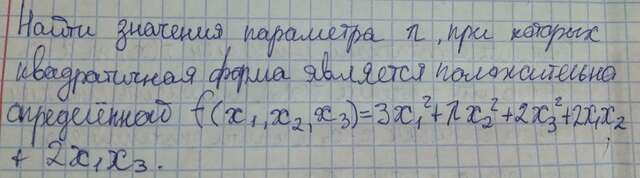 Найти значения параметра λ, при которых
квадратичная форма является положительно
определённой f(x₁,x₂,x₃)=3x₁²+λx₂²+2x₃²+2x₁x₂
+ 2x₁x₃.